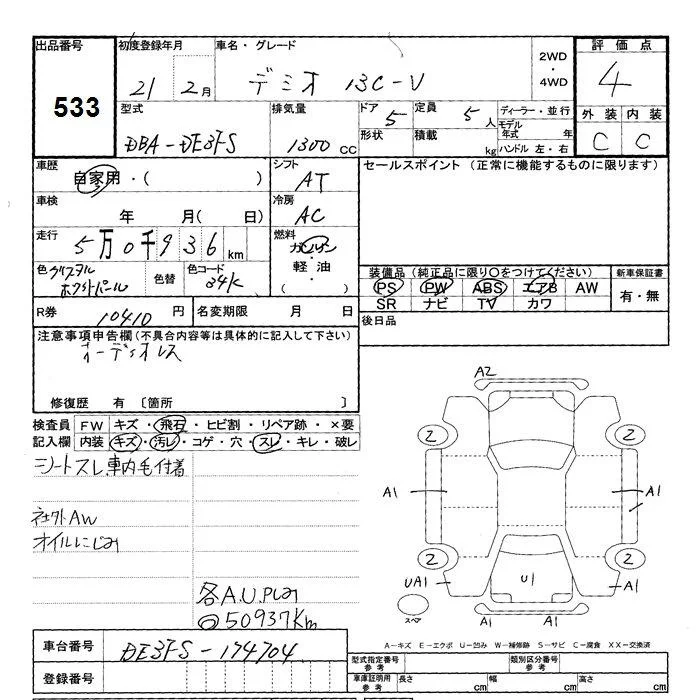 出品番号 初度登録年月 車名・グレード 2WD・4WD 評価点
533 21 2月 デミオ 13C-V 4
型式 排気量 ドア 定員 ディーラー・並行 外装 内装
DBA-DE3FS 1300cc 5 5人 モデル年式 年 C C
形状 積載 kg ハンドル 左・右
車歴 シフト セールスポイント (正常に機能するものに限ります)
自家用・( ) AT
車検 冷房
年 月(日) AC
走行 燃料
5万0千936km ガソリン
軽油
・
( )
色 クリスタルホワイトパール 色替 色コード 34K
装備品(純正品に限り○をつけてください) 新車保証書
PS PW ABS エアB AW 有・無
SR ナビ TV カワ
R券 10410円 名変期限 月 日 後日品
注意事項申告欄(不具合内容等は具体的に記入して下さい)
オーディオレス
修復歴 有 〔箇所 〕
検査員 FW キズ・飛石・ヒビ割・リペア跡・×要
記入欄 内装 キズ・汚レ・コゲ・穴・スレ・キレ・破レ
シートスレ 車内毛付着
社外AW
オイルにじみ
各A.U.
50937Km
A2
2 2
A1 A1
2 2
UA1 U1 A1
スペア A1 A1
A-キズ E-エクボ U-凹み W-補修跡 S-サビ C-腐食 XX-交換済
車台番号 DE3FS-174704
型式指定番号 参考 類別区分番号 参考
登録番号 車庫証明用 参考 長さ cm 幅 cm 高さ cm